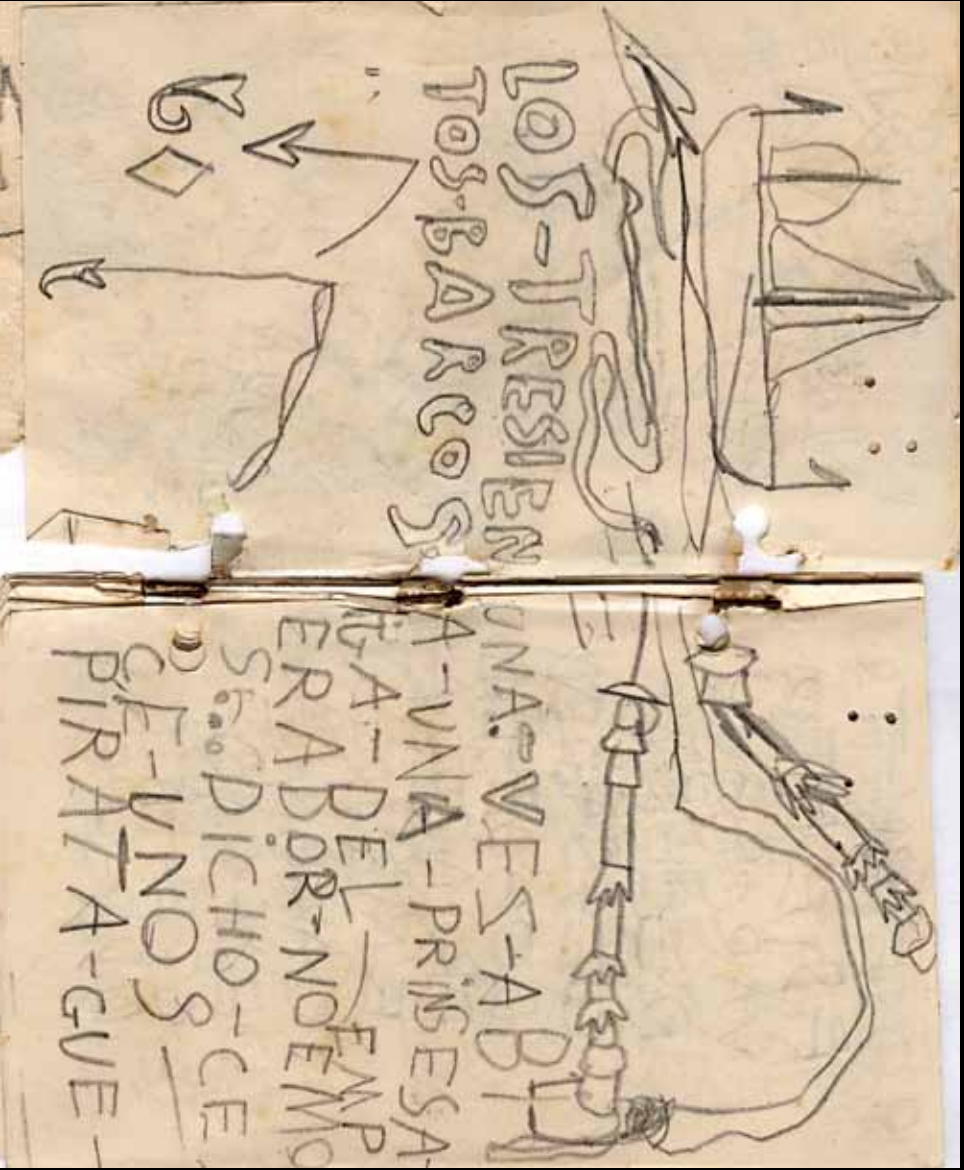 LOS-TRESIEN
TOS-BARCOS
UNA-VES-ABI
A-UNA-PRiNSESA-
DEL EMP
ERABOR-NOEMO
S... DICHO-CE
CE-UNOS
PIRATA-GUE-